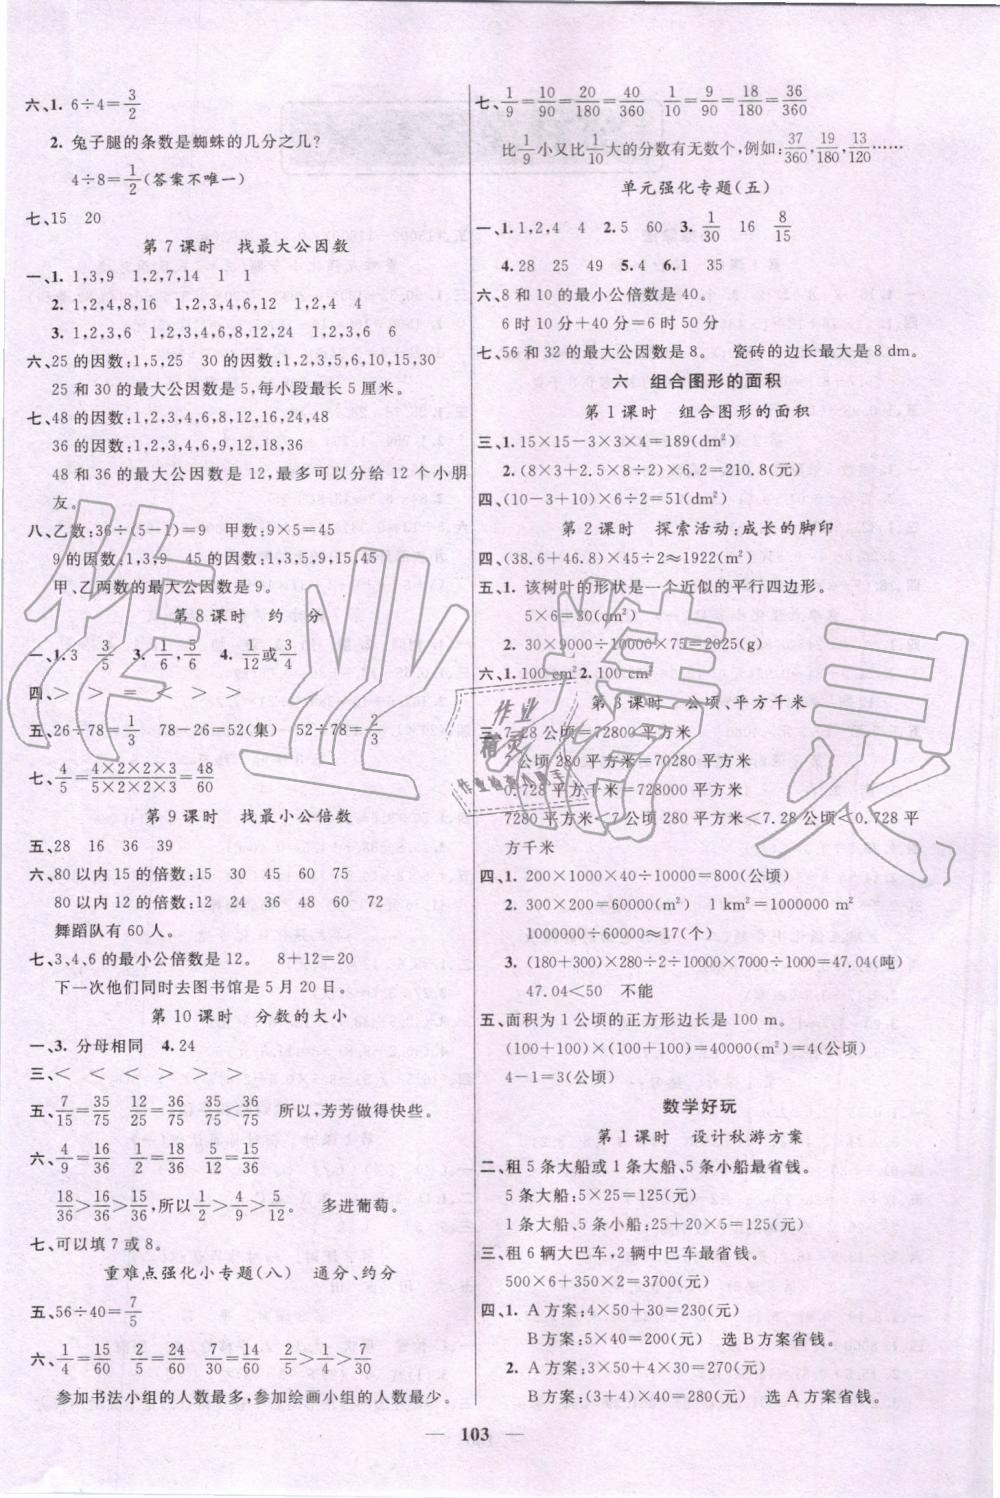 六、1. 6÷4=3/2
2. 兔子腿的条数是蜘蛛的几分之几?
4÷8=1/2(答案不唯一)
七、15 20
第7课时 找最大公因数
一、1. 1,3,9 1,2,7,14 1 1
2. 1,2,4,8,16 1,2,3,4,6,12 1,2,4 4
3. 1,2,3,6 1,2,3,4,6,8,12,24 1,2,3,6 6
六、25的因数:1,5,25 30的因数:1,2,3,5,6,10,15,30
25和30的最大公因数是5,每小段最长5厘米。
七、48的因数:1,2,3,4,6,8,12,16,24,48
36的因数:1,2,3,4,6,9,12,18,36
48和36的最大公因数是12,最多可以分给12个小朋
友。
八、乙数:36÷(5−1)=9 甲数:9×5=45
9的因数:1,3,9 45的因数:1,3,5,9,15,45
甲、乙两数的最大公因数是9。
第8课时 约分
一、1.3 3/5 3.1/6,5/6 4.3/12或3/4
四、> > = < > >
五、26÷78=1/3 78−26=52(集) 52÷78=2/3
七、4/5=4×2×2×3/5×2×2×3=48/60
第9课时 找最小公倍数
五、28 16 36 39
六、80以内15的倍数:15 30 45 60 75
80以内12的倍数:12 24 36 48 60 72
舞蹈队有60人。
七、3,4,6的最小公倍数是12。 8+12=20
下一次他们同时去图书馆是5月20日。
第10课时 分数的大小
一、3. 分母相同 4.24
三、< < < > > >
五、7/15=35/75 12/25=36/75 35/75<36/75 所以,芳芳做得快些。
六、4/9=16/36 1/2=18/36 5/12=15/36
18/36>16/36>15/36,所以1/2>4/9>5/12 多进葡萄。
七、可以填7或8。
重难点强化小专题(八) 通分、约分
五、56÷40=7/5
六、1/4=15/60 2/5=24/60 7/30=14/60 2/5>1/4>7/30
参加书法小组的人数最多,参加绘画小组的人数最少。
七、1/9=10/90=20/180=40/360 1/10=9/90=18/180=36/360
比1/9小又比1/10大的分数有无数个,例如:37/360,19/180,13/120……
单元强化专题(五)
一、1.1,2,4 4 2.5 60 3.1/30 16 8/15
4.28 25 49 5.4 6.1 35
六、8和10的最小公倍数是40。
6时10分+40分=6时50分
七、56和32的最大公因数是8。 瓷砖的边长最大是8 dm。
六 组合图形的面积
第1课时 组合图形的面积
三、1.15×15−3×3×4=189(dm²)
2.(8×3+2.5×8÷2)×6.2=210.8(元)
四、(10−3+10)×6÷2=51(dm²)
第2课时 探索活动:成长的脚印
四、(38.6+46.8)×45÷2≈1922(m²)
五、1. 该树叶的形状是一个近似的平行四边形。
5×6=30(cm²)
2. 30×9000÷10000×75=2025(g)
六、1.100 cm² 2.100 cm²
第3课时 公顷、平方千米
三、7.28公顷=72800平方米
7公顷280平方米=70280平方米
0.728平方千米=728000平方米
7280平方米<7公顷280平方米<7.28公顷<0.728平
方千米
四、1. 200×1000×40÷10000=800(公顷)
2. 300×200=60000(m²) 1 km²=1000000 m²
1000000÷60000≈17(个)
3. (180+300)×280÷2÷10000×7000÷1000=47.04(吨)
47.04<50 不能
五、面积为1公顷的正方形边长是100 m。
(100+100)×(100+100)=40000(m²)=4(公顷)
4−1=3(公顷)
数学好玩
第1课时 设计秋游方案
二、租5条大船或1条大船、5条小船最省钱。
5条大船:5×25=125(元)
1条大船、5条小船:25+20×5=125(元)
三、租6辆大巴车,2辆中巴车最省钱。
500×6+350×2=3700(元)
四、1. A方案:4×50+30=230(元)
B方案:5×40=200(元) 选B方案省钱。
2. A方案:3×50+4×30=270(元)
B方案:(3+4)×40=280(元) 选A方案省钱。
— 103 —
作业精灵
作业
精灵
作业检查小助手